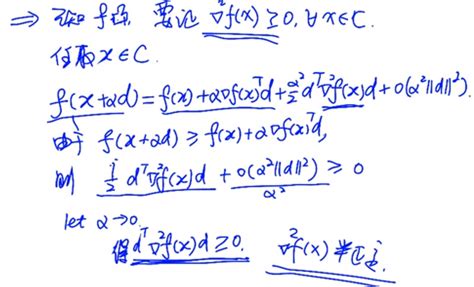 ⇒ 已知 f凸, 要证 ∇²f(x) ≥ 0, ∀x∈C.
任取 x∈C.
f(x+αd) = f(x) + α∇f(x)ᵀd + α²/2 dᵀ∇²f(x)d + o(α²‖d‖²).
由于 f(x+αd) ≥ f(x) + α∇f(x)ᵀd,
则 1/2 dᵀ∇²f(x)d + o(α²‖d‖²)/α² ≥ 0
let α→0.
得 dᵀ∇²f(x)d ≥ 0. ∇²f(x) 半正定.